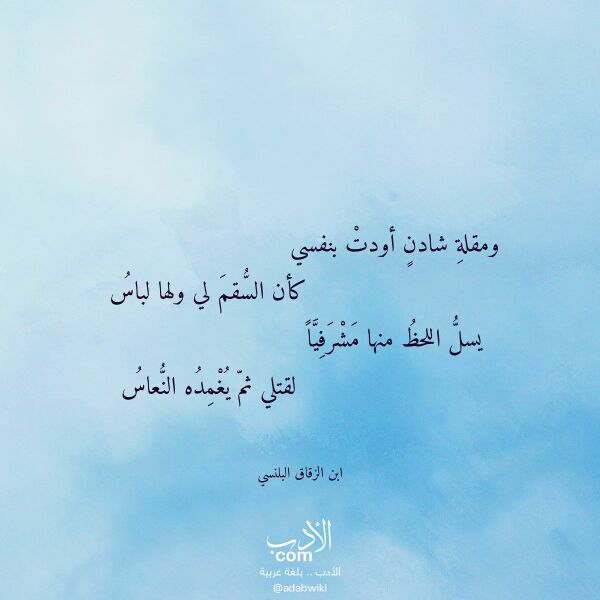 ومقلةِ شادنٍ أودتْ بنفسي
كأن السُّقمَ لي ولها لباسُ
يسلُّ اللحظُ منها مَشْرَفِيَّاً
لقتلي ثمّ يُغْمِدُه النُّعاسُ
ابن الزقاق البلنسي
الأدب
com
الأدب .. بلغة عربية
@adabwiki